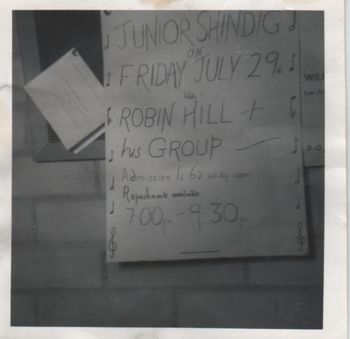 JUNIOR SHINDIG
ON
FRIDAY JULY 29th
ROBIN HILL +
his GROUP
Admission 1s 6d
Refreshments available
7.00pm - 9.30pm